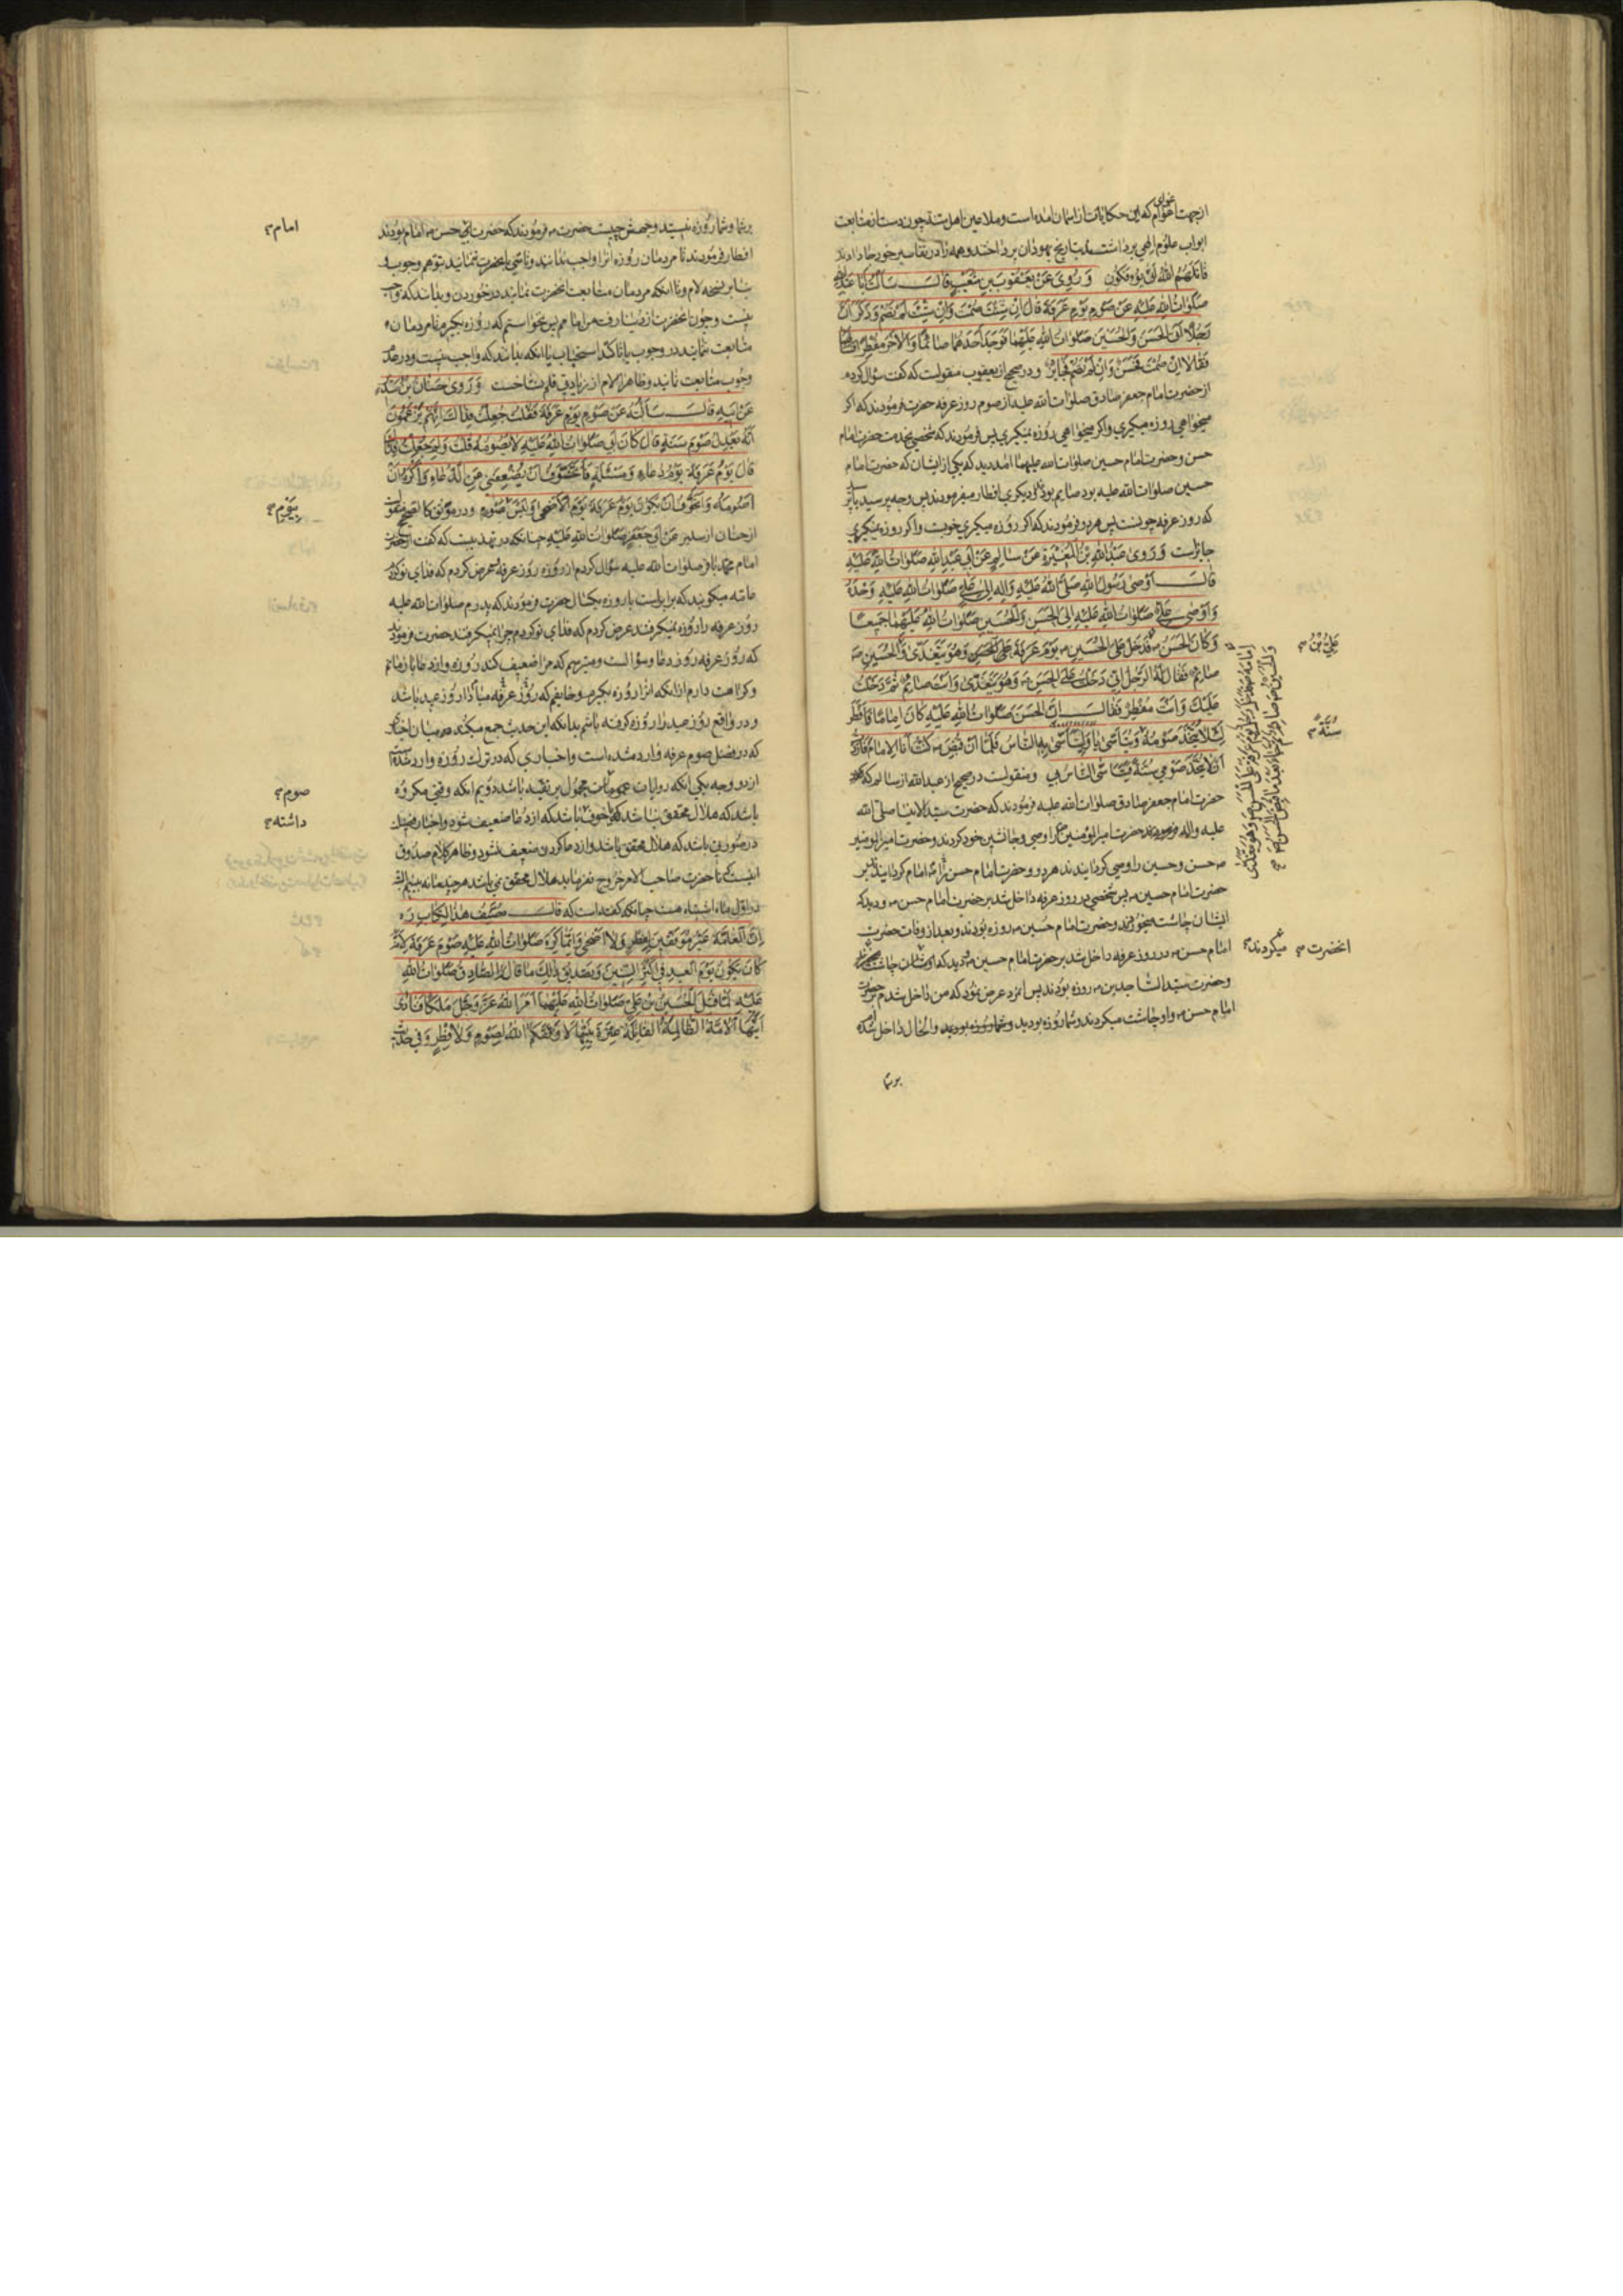 از جهت عوام که این حکایات از اسمان امده است و ملاعین اهل سنة چون دست از متابعت
ابواب علوم الهی برداشتند بتاریخ یهودان پرداختند و همه را در تفاسیر خود جا دادند
قاتلهم الله انی یؤفکون وَ رُوِیَ عَنْ یَعْقُوبَ بْنِ شُعَیْبٍ قَالَ سَأَلْتُ أَبَا عَبْدِ اللهِ
صَلَوَاتُ اللهِ عَلَیْهِ عَنْ صَوْمِ یَوْمِ عَرَفَةَ قَالَ إِنْ شِئْتَ صُمْتَ وَإِنْ شِئْتَ لَمْ تَصُمْ وَذَكَرَ أَنَّ
رَجُلًا أَتَی الْحَسَنَ وَالْحُسَیْنَ صَلَوَاتُ اللهِ عَلَیْهِمَا فَوَجَدَ أَحَدَهُمَا صَائِمًا وَالْآخَرَ مُفْطِرًا
فَقَالَا إِنْ صُمْتَ فَحَسَنٌ وَإِنْ لَمْ تَصُمْ فَجَائِزٌ و در صحیح از یعقوب منقولست که گفت سؤال کردم
از حضرت امام جعفر صادق صلوات الله علیه از صوم روز عرفه حضرت فرمودند که اکر
میخواهی روزه میکیری و اکر میخواهی روزه نمیکیری پس فرمودند که شخصی بخدمت حضرت امام
حسن و حضرت امام حسین صلوات الله علیهما امد دید که یکی از ایشان که حضرت امام
حسین صلوات الله علیه بود صایم بود و دیکری افطار میفرمودند پس وجه پرسید
که روز عرفه چونست پس هر دو فرمودند که اکر روزه میکیری خوبست و اکر روزه نمیکیری
جایزست وَرَوَی عَبْدُ اللهِ بْنُ الْمُغِیْرَةِ عَنْ سَالِمٍ عَنْ أَبِی عَبْدِ اللهِ صَلَوَاتُ اللهِ عَلَیْهِ
قَالَ أَوْصَی رَسُولُ اللهِ صَلَّی اللهُ عَلَیْهِ وَآلِهِ إِلَی عَلِیٍّ صَلَوَاتُ اللهِ عَلَیْهِ وَحْدَهُ
وَأَوْصَی عَلِیٌّ صَلَوَاتُ اللهِ عَلَیْهِ إِلَی الْحَسَنِ وَالْحُسَیْنِ صَلَوَاتُ اللهِ عَلَیْهِمَا جَمِیعًا
وَكَانَ الْحَسَنُ فَدَخَلَ عَلَی الْحُسَیْنِ یَوْمَ عَرَفَةَ وَهُوَ یَتَغَدَّی وَالْحُسَیْنِ
صَائِمٌ فَقَالَ لَهُ الرَّجُلُ إِنِّی دَخَلْتُ عَلَی الْحَسَنِ وَهُوَ یَتَغَدَّی وَأَنْتَ صَائِمٌ ثُمَّ دَخَلْتُ
عَلَیْكَ وَأَنْتَ مُفْطِرٌ فَقَالَ إِنَّ الْحَسَنَ صَلَوَاتُ اللهِ عَلَیْهِ كَانَ إِمَامًا فَأَفْطَرَ
لِئَلَّا یُتَّخَذَ صَوْمُهُ وَیَتَأَسَّی بِهِ النَّاسُ فَلَمَّا أَنْ قُبِضَ كُنْتُ أَنَا الْإِمَامَ فَأَرَدْتُ
أَنْ لَا یُتَّخَذَ صَوْمِی سُنَّةً فَیَتَأَسَّی النَّاسُ بِی و منقولست در صحیح از عبد الله از سالم که
حضرت امام جعفر صادق صلوات الله علیه فرمودند که حضرت سید الانبیا صلی الله
علیه و اله حضرت امیر المؤمنین را وصی و جانشین خود کردند و حضرت امیر المومنین
حسن و حسین را وصی کردانیدند هر دو و حضرت امام حسن را امام کردانیدند
حضرت امام حسین پس شخصی در روز عرفه داخل شد بر حضرت امام حسن و دید که
ایشان چاشت میخورند و حضرت امام حسین روزه بودند و بعد از وفات حضرت
امام حسن در روز عرفه داخل شد بر حضرت امام حسین و دید که ایشان چاشت
و حضرت سید الساجدین روزه بودند پس انمرد عرض نمود که من داخل شدم بر حضرت
امام حسن و او چاشت میکردند و شما روزه بودید و الحال داخل شدم
بر شما
عَلِیُّ بْنُ
سُنَّةً
انحضرت میکردند
بر شما و شما روزه نیستید وجهش چیست حضرت فرمودند که حضرت حسن امام بودند
افطار فرمودند تا مردمان روزه انرا واجب ندانند و تاسی بانحضرت ننمایند توهم وجوب و
بنا بر نسخه لام و تا انکه مردمان متابعت انحضرت نمایند در خوردن و بدانند که واجب
نیست و چون انحضرت از دنیا رفت من امامم پس نخواستم که روزه بکیرم تا مردمان
متابعت نمایند در وجوب یا تاکد استحباب یا انکه بدانند که واجب نیست و در عدم
وجوب متابعت نمایند و ظاهرا لام از زیادتی قلم نساخست وَرَوَی حَنَانُ بْنُ سَدِیرٍ
عَنْ أَبِیهِ قَالَ سَأَلْتُهُ عَنْ صَوْمِ یَوْمِ عَرَفَةَ فَقُلْتُ جُعِلْتُ فِدَاكَ إِنَّهُمْ یَزْعُمُونَ
أَنَّهُ یَعْدِلُ صَوْمَ سَنَةٍ قَالَ كَانَ أَبِی صَلَوَاتُ اللهِ عَلَیْهِ لَا یَصُومُهُ قُلْتُ وَلِمَ جُعِلْتُ فِدَاكَ
قَالَ یَوْمُ عَرَفَةَ یَوْمُ دُعَاءٍ وَمَسْئَلَةٍ فَأَتَخَوَّفُ أَنْ یُضْعِفَنِی عَنِ الدُّعَاءِ وَأَكْرَهُ أَنْ
أَصُومَهُ وَأَتَخَوَّفُ أَنْ یَكُونَ یَوْمُ عَرَفَةَ یَوْمَ الْأَضْحَی وَلَیْسَ صَوْمٍ و در موثق کالصحیح منقول
از حنان از سدیر عَنْ أَبِی جَعْفَرٍ صَلَوَاتُ اللهِ عَلَیْهِ چنانکه در تهذیبست که گفت از حضرت
امام محمد باقر صلوات الله علیه سؤال کردم از روزه روز عرفه عرض کردم که فدای تو کردم
عامه میکویند که برابرست با روزه یکسال حضرت فرمودند که پدرم صلوات الله علیه
روز عرفه را روزه نمیکرفتند عرض کردم که فدای تو کردم چرا نمیکرفتند حضرت فرمودند
که روز عرفه روز دعا و سؤالست و میترسم که مرا ضعیف کند روزه و از دعا باز مانم
و کراهت دارم از انکه انرا روزه بکیرم و خایفم که روز عرفه مبادا روز عید باشد
و در واقع روز عید را روزه کرفته باشم بدانکه این حدیث جمع میکند میان اخباری
که در فضل صوم عرفه وارد شده است و اخباری که در ترک روزه وارد شده
از دو وجه یکی انکه روایات محمول بر تقیه باشد دویم انکه وقتی مکروه
باشد که هلال محقق نباشد یا خوف باشد که از دعا ضعیف شود و اخبار فضیلت
در صورتی باشد که هلال محقق باشد و از دعا کردن ضعیف نشود و ظاهر کلام صدوق
اینست که تا حضرت صاحب الامر خروج نفرماید هلال محقق نمی باشد هر چند ماه ببینیم البته
در اول ماه اشتباه هست چنانکه گفته است که قَالَ مُصَنِّفُ هَذَا الْكِتَابِ ره
إِنَّ الْعَامَّةَ غَیْرُ مُوَفَّقِینَ لِفِطْرٍ وَلَا أَضْحَی وَإِنَّمَا كَرِهَ صَلَوَاتُ اللهِ عَلَیْهِ صَوْمَ عَرَفَةَ لِأَنَّهُ
كَانَ یَكُونُ یَوْمَ الْعِیدِ فِی أَكْثَرِ السِّنِینَ وَتَصْدِیقُ ذَلِكَ مَا قَالَ الصَّادِقُ صَلَوَاتُ اللهِ
عَلَیْهِ لَمَّا قُتِلَ الْحُسَیْنُ بْنُ عَلِیٍّ صَلَوَاتُ اللهِ عَلَیْهِمَا أَمَرَ اللهُ عَزَّ وَجَلَّ مَلَكًا فَنَادَی
أَیَّتُهَا الْأُمَّةُ الظَّالِمَةُ الْقَاتِلَةُ عِتْرَةَ نَبِیِّهَا لَا وَفَّقَكُمُ اللهُ لِصَوْمٍ وَلَا فِطْرٍ وَفِی حَدِیثٍ
امام
صوم
داشته